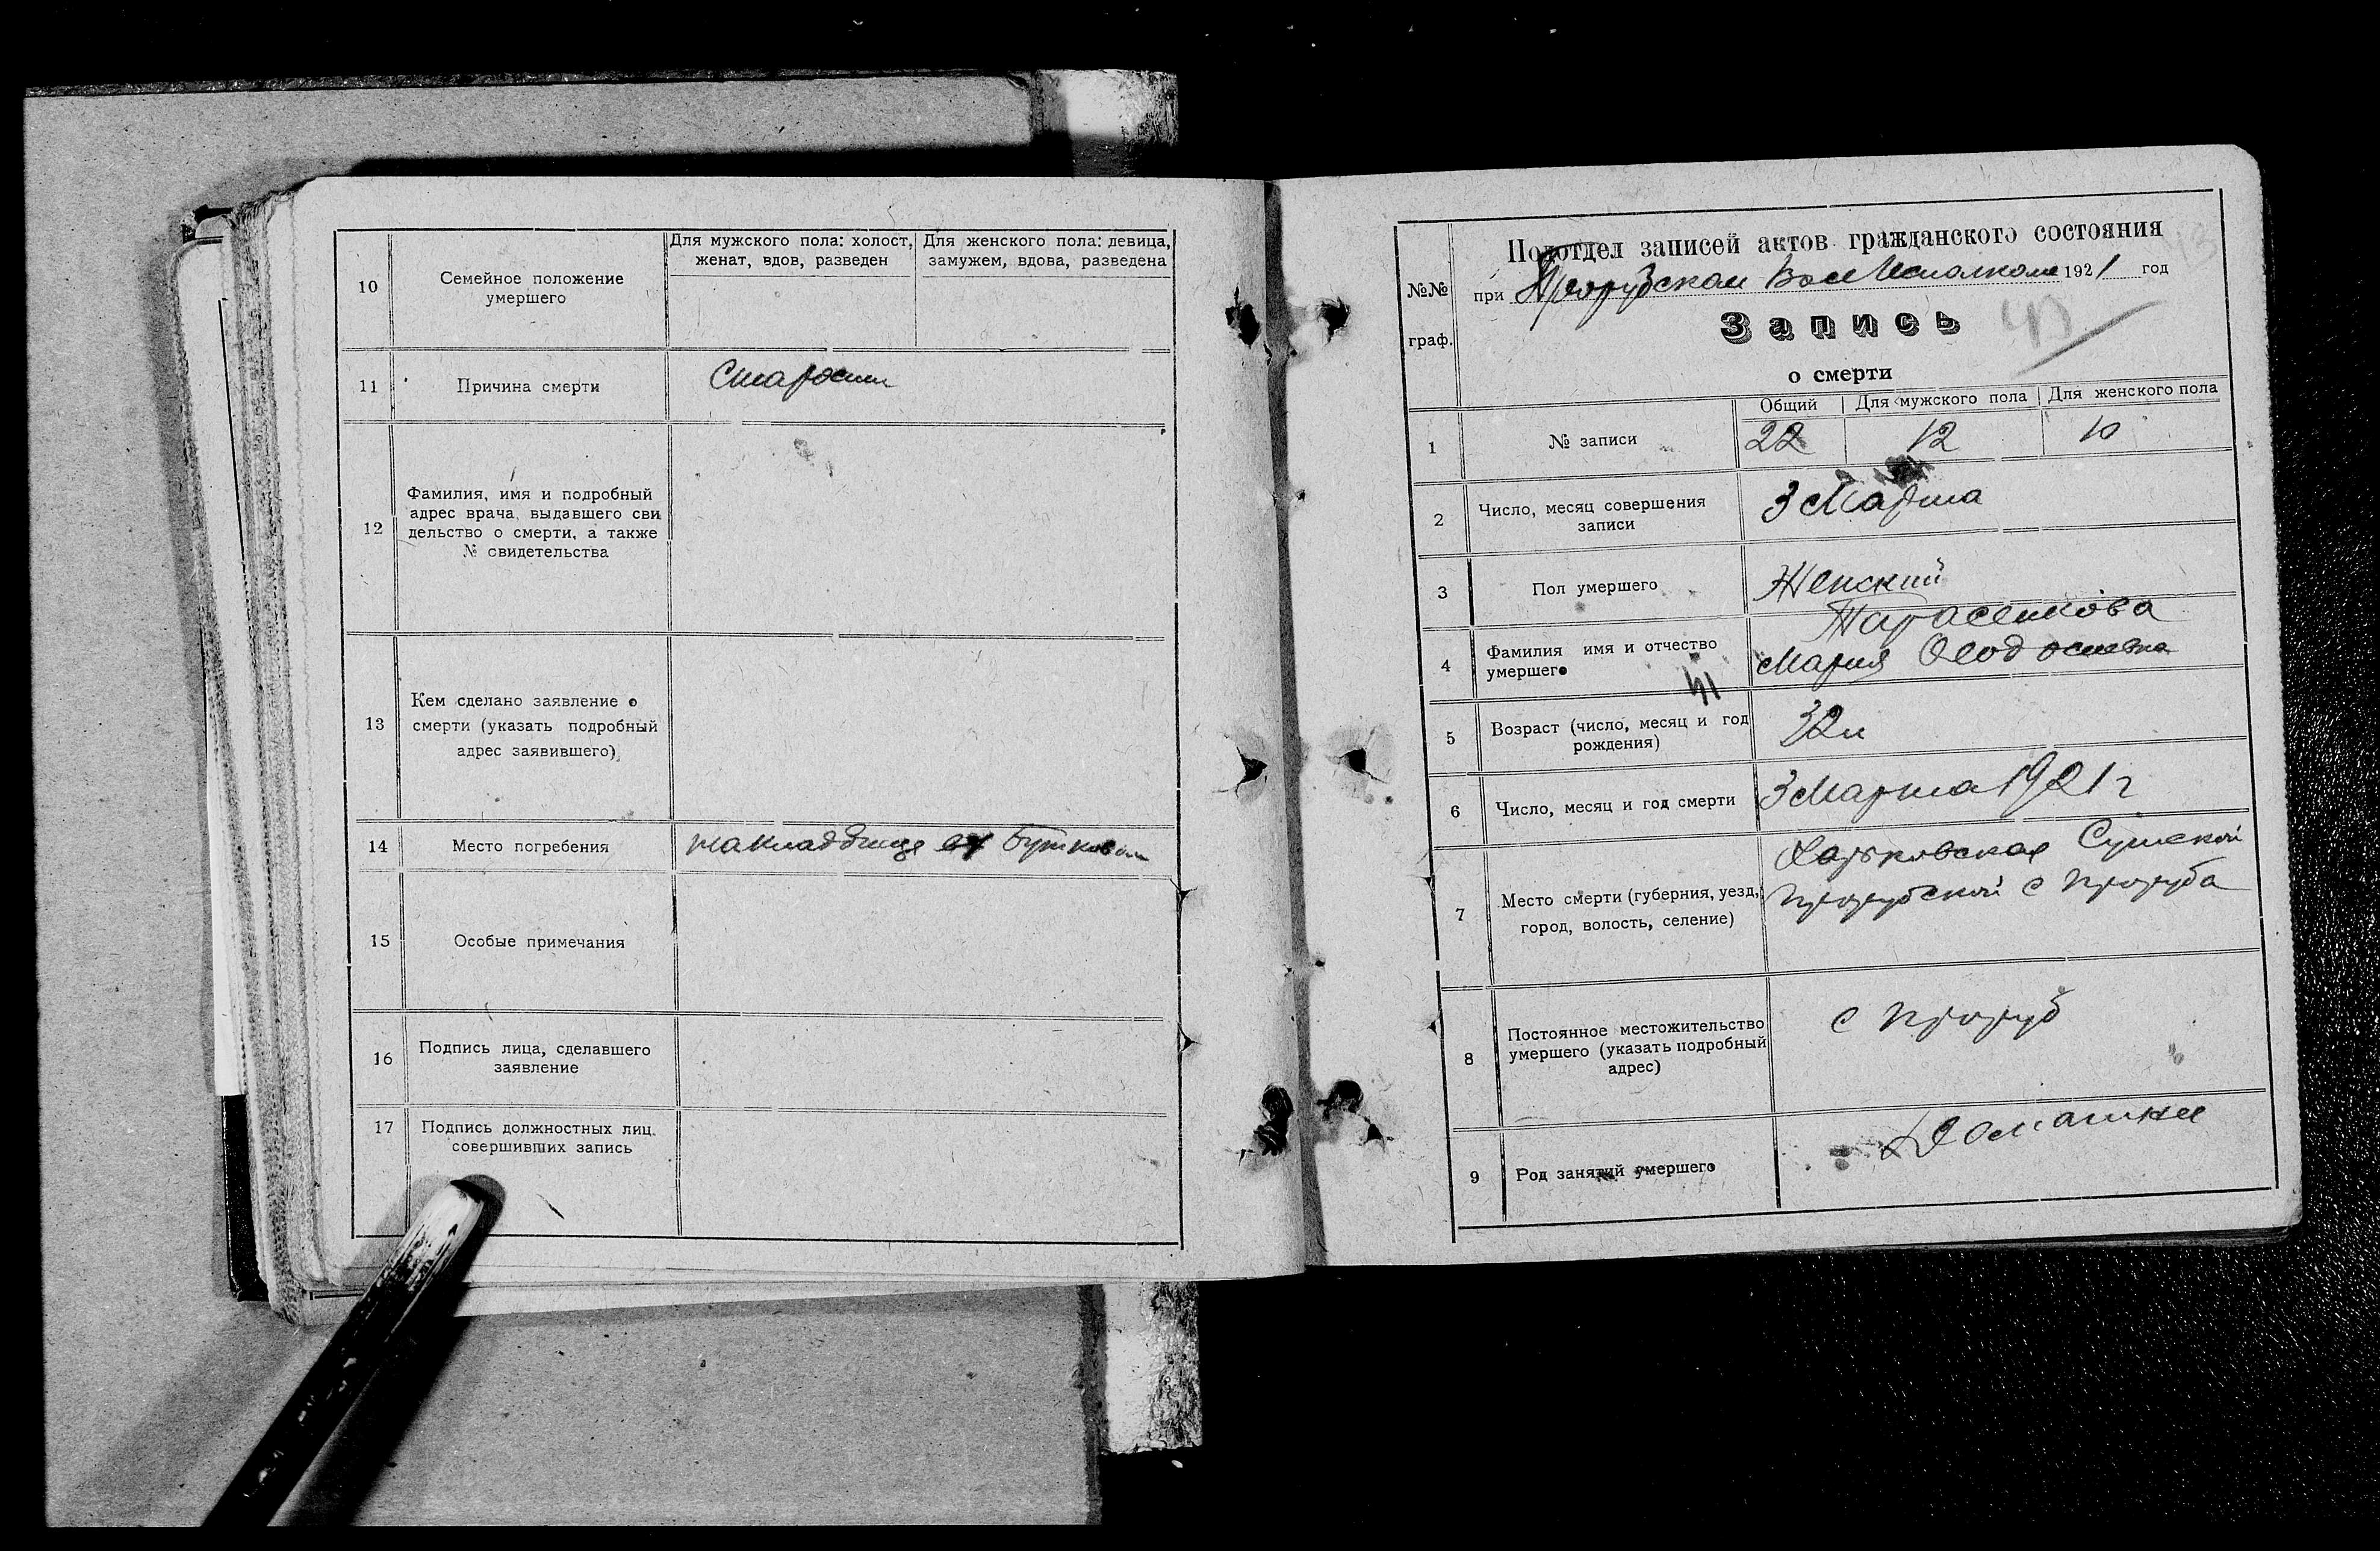 10
Семейное положение
умершего
Для мужского пола: холост,
женат, вдов, разведен
Для женского пола: девица,
замужем, вдова, разведена
11
Причина смерти
Старости
12
Фамилия, имя и подробный
адрес врача, выдавшего сви
дельство о смерти, а также
№ свидетельства
13
Кем сделано заявление о
смерти (указать подробный
адрес заявившего)
14
Место погребения
накладбище
15
Особые примечания
16
Подпись лица, сделавшего
заявление
17
Подпись должностных лиц
совершивших запись
№№
граф.
Подотдел записей актов гражданского состояния
при Прорубском Вол Исполкоме 1921 год
Запись
о смерти
Общий
Для мужского пола
Для женского пола
1
№ записи
22
12
10
2
Число, месяц совершения
записи
3 Марта
3
Пол умершего
Женский
4
Фамилия имя и отчество
умершего
Тарасенкова
Мария
5
Возраст (число, месяц и год
рождения)
32л
6
Число, месяц и год смерти
3 Марта 1921 г
7
Место смерти (губерния, уезд,
город, волость, селение)
Харьковская Сумской
Прорубской с Проруба
8
Постоянное местожительство
умершего (указать подробный
адрес)
с Проруб
9
Род занятий умершего
Домашнее